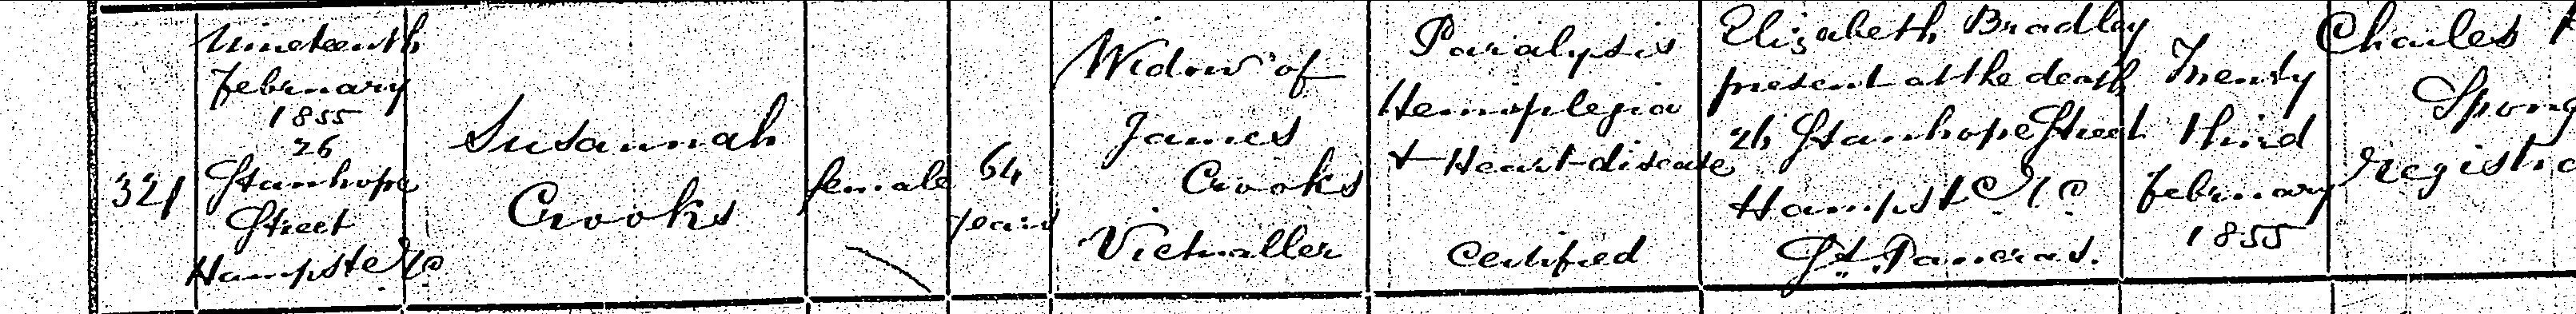 321
Nineteenth
February
1855
26
Stanhope
Street
Hampst Rd
Susannah
Crooks
female
64
years
Widow of
James
Crooks
Victualler
Paralysis
Hemiplegia
+ Heart disease
Certified
Elizabeth Bradley
present at the death
26 Stanhope Street
Hampst Rd
St. Pancras.
Twenty
third
February
1855
Charles
Spong
Registra